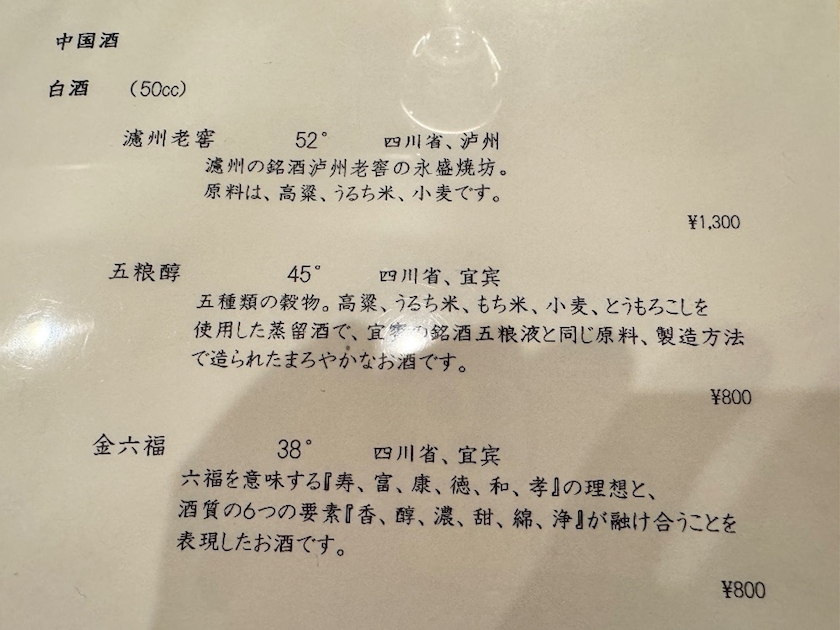 中国酒
白酒 （50cc）
濾州老窖 52° 四川省、泸州
濾州の銘酒泸州老窖の永盛焼坊。
原料は、高粱、うるち米、小麦です。
¥1,300
五粮醇 45° 四川省、宜宾
五種類の穀物。高粱、うるち米、もち米、小麦、とうもろこしを
使用した蒸留酒で、宜宾の銘酒五粮液と同じ原料、製造方法
で造られたまろやかなお酒です。
¥800
金六福 38° 四川省、宜宾
六福を意味する『寿、富、康、徳、和、孝』の理想と、
酒質の6つの要素『香、醇、濃、甜、綿、浄』が融け合うことを
表現したお酒です。
¥800